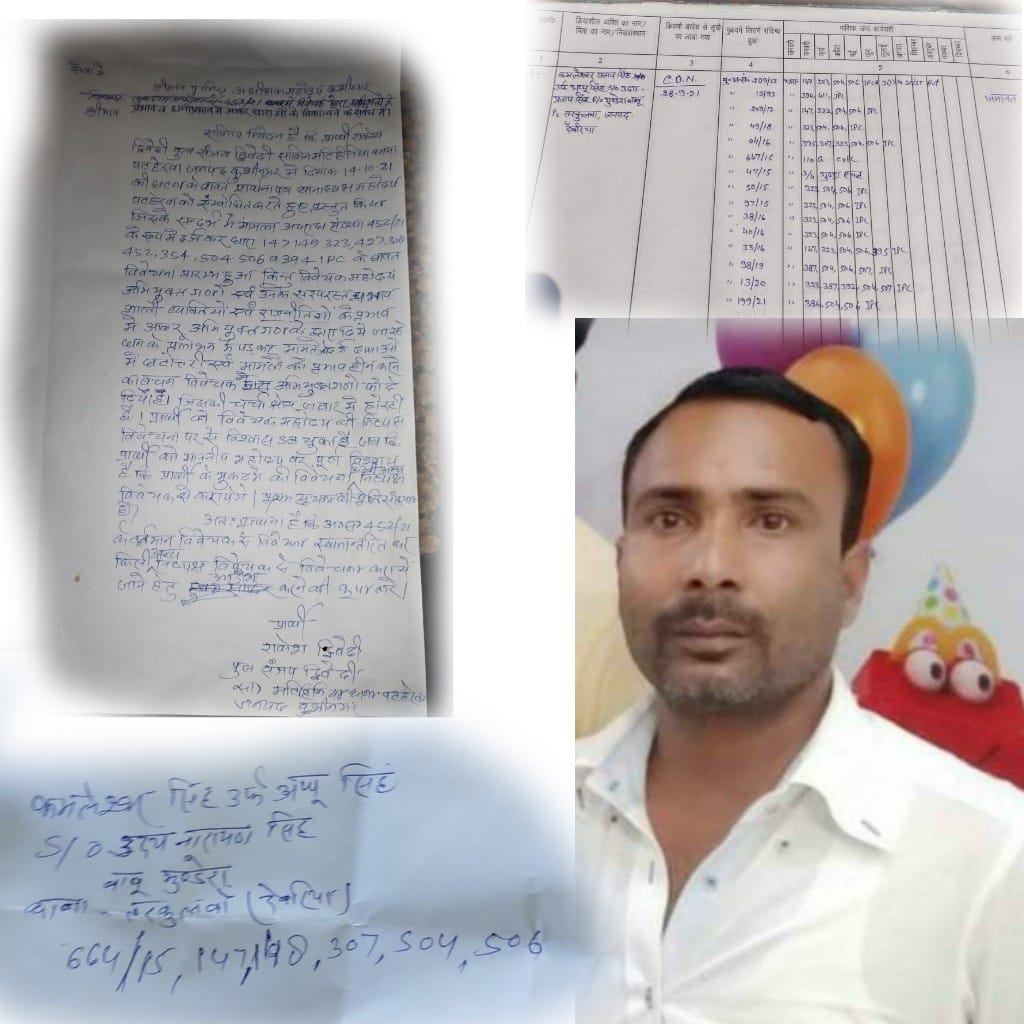 सेवा में
श्रीमान पुलिस अधीक्षक महोदय कुशीनगर
श्रीमान
सविनय निवेदन है कि प्रार्थी राकेश
द्विवेदी पुत्र संजय द्विवेदी साकिन थाना
पटहेरवा जनपद कुशीनगर ने दिनांक 14-10-21
की घटना के बावत प्रार्थनापत्र थानाध्यक्ष महोदय
पटहेरवा को सम्बोधित करते हुए प्रस्तुत किया
जिसके सन्दर्भ में मामला अपराध संख्या 452/21
के रूप में दर्ज कर धारा 147 149 323, 427,
452, 354, 504 506 व 394 IPC के बावत
विवेचना प्रारम्भ हुआ किन्तु विवेचक महोदय
अभियुक्त गणों एवं उनके सरपरस्त
शाली व्यक्तियों एवं राजनीतिज्ञों के प्रभाव
में आकर अभियुक्तगण के द्वारा दिये जा रहे
धन के प्रलोभन में पड़कर मामले में दर्ज धाराओं
में घटोत्तरी एवं मामले को प्रभावहीन करने
का वचन विवेचक द्वारा अभियुक्तगणों को दे
दिये हैं। जिसकी चर्चा क्षेत्र जवार में हो रही
है। प्रार्थी को विवेचक महोदय की निष्पक्ष
विवेचना पर से विश्वास उठ चुका है जब कि
प्रार्थी को माननीय महोदय पर पूर्ण विश्वास
है कि प्रार्थी के मुकदमे की विवेचना निष्पक्ष
विवेचक से करायेंगे।
है।
अतः प्रार्थना है कि अ0सं0 452/21
के वर्तमान विवेचक से विवेचना स्थानान्तरित कर
किसी अन्य निष्पक्ष विवेचक से विवेचना कराये
जाने हेतु आदेश करने की कृपा करें।
प्रार्थी
राकेश द्विवेदी
पुत्र संजय द्विवेदी
सा0 थाना पटहेरवा
जनपद कुशीनगर
क्रियाशील व्यक्ति का नाम/ पिता का नाम/निवासस्थान
किसके आदेश से सूची पर लाया गया
मुकदमें जिसमें संदिग्ध हुआ
मासिक जांच कार्यवाही
अन्य बातें
जनवरी फरवरी मार्च अप्रैल मई जून जुलाई अगस्त सितम्बर अक्टूबर नवम्बर दिसम्बर
2 3 4 5 6
कमलेश्वर प्रताप सिंह
उर्फ अप्पू सिंह S/o उदय
प्रताप सिंह
तरकुलवा, जनपद-
देवरिया
C.O.N.
28-9-21
209/13
" 13/93 396, 411, IPC
" 209/12 147, 323, 504, 506 IPC
" 49/18 323, 504, 506 IPC
" 04/16 395, 397, 323, 504, 506 IPC
" 667/15 110 G CrPC
" 47/15 3/4 गुण्डा एक्ट
" 50/15 323, 504, 506 IPC
" 97/15 323, 504, 506 IPC
" 38/16 323, 504, 506 IPC
" 40/16 323, 504, 506 IPC
" 33/16 147, 323, 504, 506, 395 IPC
" 98/19 387, 504, 506, 507, IPC
" 13/20 323, 387, 392, 504, 507 IPC
" 199/21 384, 504, 506 IPC
जमानत
कमलेश्वर सिंह उर्फ अप्पू सिंह
S/o उदय नारायण सिंह
बाबू मुण्डेरा
थाना - तरकुलवा (देवरिया)
664/15, 147, 148, 307, 504, 506